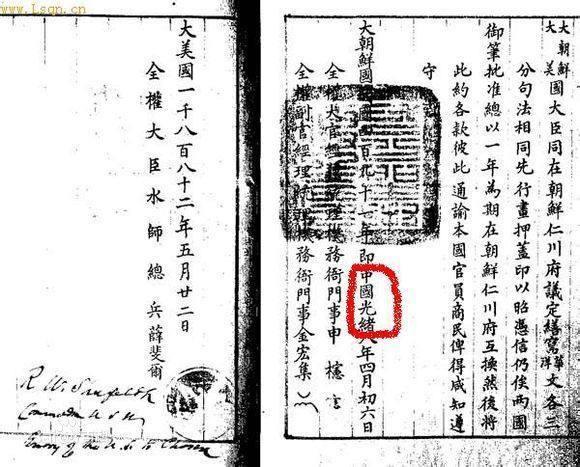 www.Lsqn.cn
大朝鮮
大美
國大臣同在朝鮮仁川府議定繕寫華洋文各三
分句法相同先行畫押蓋印以昭憑信仍俟兩國
御筆批准總以一年為期在朝鮮仁川府互換然後將
此約各款彼此通諭本國官員商民俾得咸知遵
守
大朝鮮國開國四百九十一年即中國光緒八年四月初六日
全權大官經理統理機務衙門事申櫶
全權副官經理統理機務衙門事金宏集
大美國一千八百八十二年五月廿二日
全權大臣水師總兵薛斐爾
R. W. Shufeldt
Commodore U.S.N.
Envoy of the U.S. to Chosen